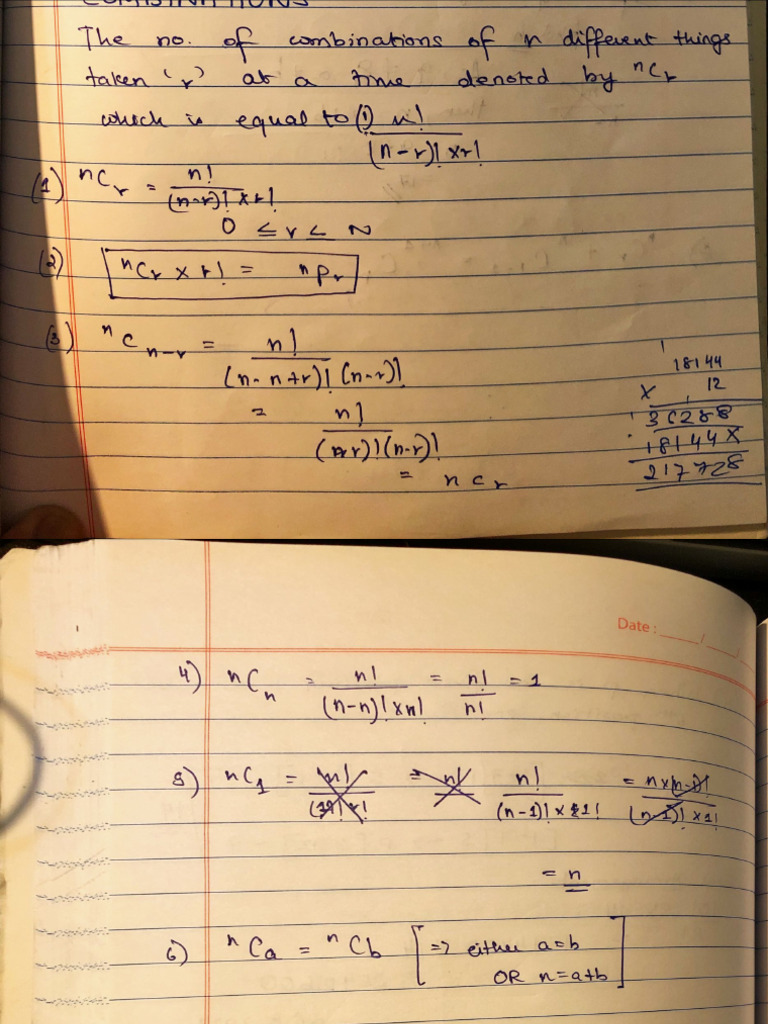 COMBINATIONS
The no. of combinations of n different things
taken 'r' at a time denoted by ⁿCᵣ
which is equal to (1) n!
(n-r)! × r!
(1) ⁿCᵣ = n!
(n-r)! × r!
0 ≤ r ≤ N
(2) ⁿCᵣ × r! = ⁿPᵣ
(3) ⁿCₙ₋ᵣ = n!
(n-n+r)! (n-r)!
= n!
(r)! (n-r)!
= nCᵣ
1
18144
× 12
36288
18144×
217728
Date: ___/___/___
4) ⁿCₙ = n! = n! = 1
(n-n)! × n! n!
5) ⁿC₁ = n! = n × (n-1)!
(n-1)! × 1! (n-1)! × 1!
= n
6) ⁿCa = ⁿCb [⇒ either a=b
OR n=a+b]